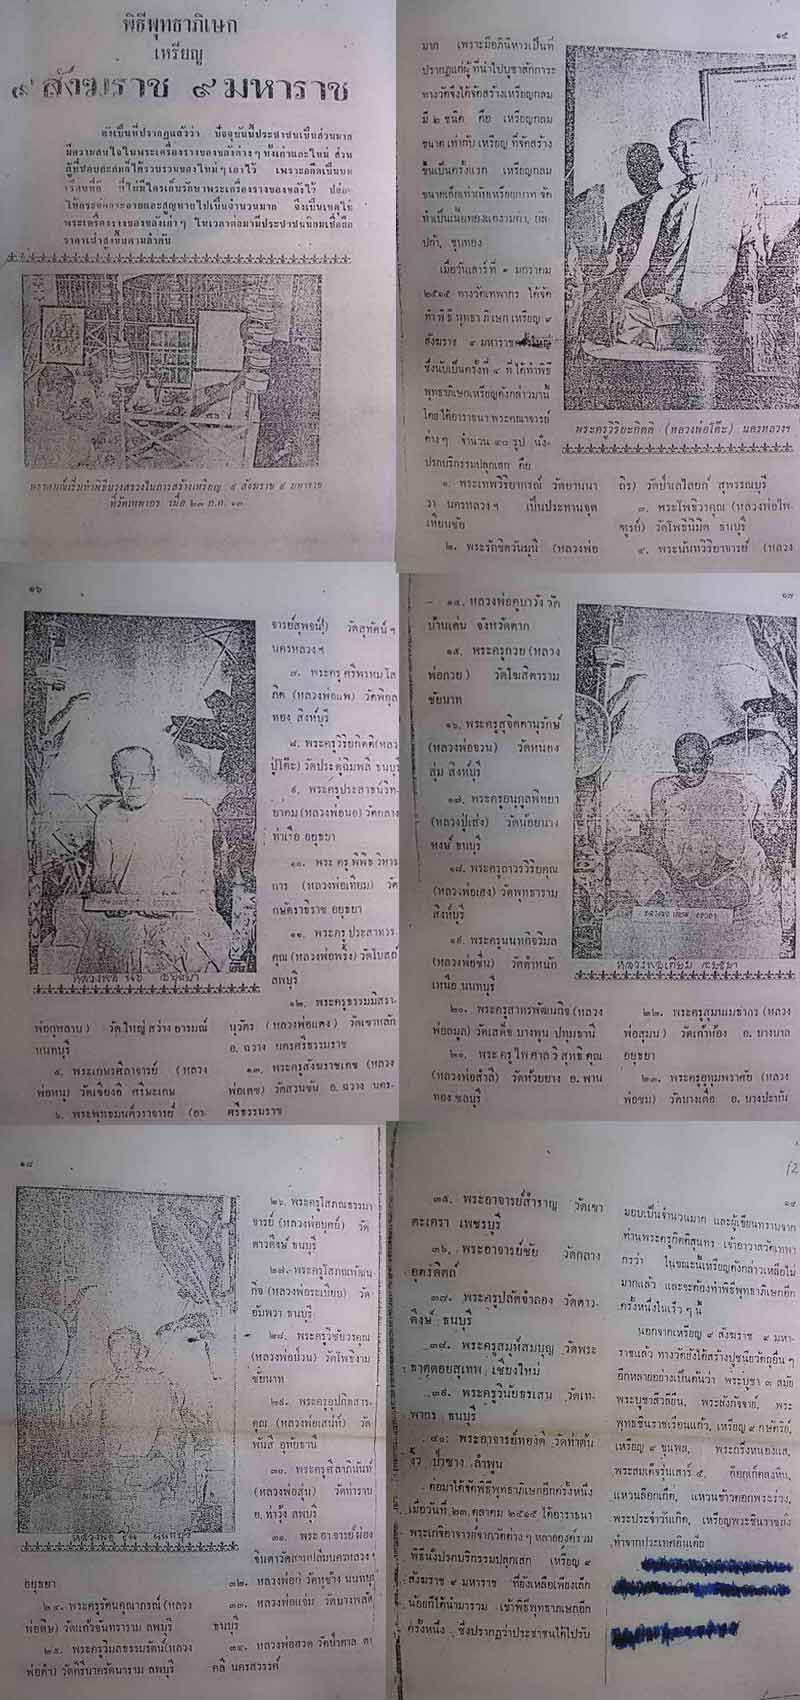 พิธีพุทธาภิเษก
เหรียญ
๙ สังฆราช ๙ มหาราช
ดังเป็นที่ปรากฏแล้วว่า ปัจจุบันนี้ประชาชนเป็นส่วนมาก
มีความสนใจในพระเครื่องรางของขลังต่างๆ ทั้งเก่าและใหม่ ส่วน
ผู้ที่ชอบสะสมก็ได้รวบรวมของใหม่ๆ เอาไว้ เพราะอดีตเป็นบท
ที่ไม่มีใครเก็บรักษาพระเครื่องรางของขลังไว้
และสูญหายไปเป็นจำนวนมาก จึงเป็นเหตุให้
พระเครื่องรางของขลังเก่าๆ ในเวลาต่อมามีประชาชนนิยมเชื่อถือ
ราคาเช่าสูงขึ้นตามลำดับ
พิธีบวงสรวงในการสร้างเหรียญ ๙ สังฆราช ๙ มหาราช
ที่วัดเทพากร เมื่อ ๒๓ ก.ค. ๑๓
๑๕
มาก เพราะมีอภินิหารเป็นที่
ปรากฏแก่ผู้ที่นำไปบูชาสักการะ
ทางวัดจึงได้จัดสร้างเหรียญกลม
มี ๒ ชนิด คือ เหรียญกลม
ขนาดเท่ากับเหรียญที่จัดสร้าง
ขึ้นเป็นครั้งแรก เหรียญกลม
ขนาดเล็กเท่ากับเหรียญบาท จัด
ทำเป็นเนื้อทองแดงรมดำ,
ชุบทอง
เมื่อวันเสาร์ที่ ๑ มกราคม
๒๕๑๕ ทางวัดเทพากร ได้จัด
ทำพิธีพุทธาภิเษกเหรียญ ๙
สังฆราช ๙ มหาราชครั้งใหญ่
ซึ่งนับเป็นครั้งที่ ๔ ที่ได้ทำพิธี
พุทธาภิเษกเหรียญดังกล่าวมานี้
โดยได้อาราธนาพระคณาจารย์
ต่างๆ จำนวน ๔๐ รูป นั่ง
ปรกบริกรรมปลุกเสก คือ
พระครูวิริยะกิตติ (หลวงพ่อโต๊ะ) นครหลวงฯ
๑. พระเทพวิริยาภรณ์ วัดยานนา
วา นครหลวงฯ เป็นประธานจุด
เทียนชัย
๒. พระรักขิตวันมุนี (หลวงพ่อ
ถิร) วัดป่าเลไลยก์ สุพรรณบุรี
๓. พระโพธิวรคุณ (หลวงพ่อไพ-
ฑูรย์) วัดโพธินิมิต ธนบุรี
๔. พระนันทวิริยาจารย์ (หลวง
๑๖
จารย์สุพจน์) วัดสุทัศน์ฯ
นครหลวงฯ
๗. พระครูศรีพรหมโส
ภิต (หลวงพ่อแพ) วัดพิกุล
ทอง สิงห์บุรี
๘. พระครูวิริยกิตติ(หลวง
ปู่โต๊ะ) วัดประดู่ฉิมพลี ธนบุรี
๙. พระครูประสาธน์วิท-
ยาคม (หลวงพ่อนอ) วัดกลาง
ท่าเรือ อยุธยา
๑๐. พระครูพิพิธวิหาร
การ (หลวงพ่อเทียม) วัด
กษัตราธิราช อยุธยา
๑๑. พระครูประสาทวร
คุณ (หลวงพ่อพริ้ง) วัดโบสถ์
ลพบุรี
หลวงพ่อ นอ อยุธยา
พ่อกุหลาบ) วัดใหญ่สว่างอารมณ์
นนทบุรี
๕. พระเกษตรศีลาจารย์ (หลวง
พ่อหนู) วัดเจียงอี ศรีษะเกษ
๖. พระพุทธมนต์วราจารย์ (อา-
๑๒. พระครูธรรมมิสรา-
นุวัตร (หลวงพ่อแดง) วัดเขาหลัก
อ. ฉวาง นครศรีธรรมราช
๑๓. พระครูสังฆราชเดช (หลวง
พ่อเดช) วัดสวนขัน อ. ฉวาง นคร-
ศรีธรรมราช
๑๗
๑๔. หลวงพ่อครูบาวัง วัด
บ้านเด่น จังหวัดตาก
๑๕. พระครูกวย (หลวง
พ่อกวย) วัดโฆสิตาราม
ชัยนาท
๑๖. พระครูสุจิตตานุรักษ์
(หลวงพ่อจวน) วัดหนอง
สุ่ม สิงห์บุรี
๑๗. พระครูอนุกูลพิทยา
(หลวงปู่เส่ง) วัดน้อยนาง
หงษ์ ธนบุรี
๑๘. พระครูถาวรวิริยคุณ
(หลวงพ่อเฮง) วัดพุทธาราม
สิงห์บุรี
๑๙. พระครูนนทกิจวิมล
(หลวงพ่อชื่น) วัดตำหนัก
เหนือ นนทบุรี
หลวงพ่อเทียม อยุธยา
๒๐. พระครูสาทรพัฒนกิจ (หลวง
พ่อลมูล) วัดเสด็จ บางพูน ปทุมธานี
๒๑. พระครูไพศาลวิสุทธิคุณ
(หลวงพ่อสำลี) วัดห้วยยาง อ. พาน
ทอง ชลบุรี
๒๒. พระครูสุมนเมธากร (หลวง
พ่อสุมน) วัดเก้าห้อง อ. บางบาล
อยุธยา
๒๓. พระครูอุทุมพราศัย (หลวง
พ่อชม) วัดบางเดื่อ อ. บางปะหัน
๑๘
๒๖. พระครูโสภณธรรมา
จารย์ (หลวงพ่อบุคย์) วัด
ดาวดึงษ์ ธนบุรี
๒๗. พระครูโสภณพัฒน
กิจ (หลวงพ่อระเบียบ) วัด
อัมพวา ธนบุรี
๒๘. พระครูวิชัยวรคุณ
(หลวงพ่อม่วน) วัดโพธิ์งาม
ชัยนาท
๒๙. พระครูอุปกิตสาร-
คุณ (หลวงพ่อเสน่ห์) วัด
พันสี อุทัยธานี
๓๐. พระครูศิลาภินันท์
(หลวงพ่อสุ่น) วัดท่าราบ
อ. ท่าวุ้ง ลพบุรี
๓๑. พระอาจารย์ผ่อง
จินดา วัดสามปลื้ม นครหลวงฯ
หลวงพ่อ ชื่น นนทบุรี
อยุธยา
๒๔. พระครูรัตนคุณาภรณ์ (หลวง
พ่อคืบ) วัดแก้วจันทราราม ลพบุรี
๒๕. พระครูวิมลธรรมรัตน์ (หลวง
พ่อคำ) วัดคิรีนาครัตนาราม ลพบุรี
๓๒. หลวงพ่อกี๋ วัดหูช้าง นนทบุรี
๓๓. หลวงพ่อแจ่ม วัดบางพลัด
ธนบุรี
๓๔. หลวงพ่อฮวด วัดป่าตาล ตา
คลี นครสวรรค์
๓๕. พระอาจารย์สำราญ วัดเขา
ตะเครา เพชรบุรี
๓๖. พระอาจารย์ชัย วัดกลาง
อุตรดิตถ์
๓๗. พระครูปลัดจำลอง วัดดาว-
ดึงษ์ ธนบุรี
๓๘. พระครูสมุห์สมบุญ วัดพระ
ธาตุดอยสุเทพ เชียงใหม่
๓๙. พระครูวินัยธรเสน วัดเท-
พากร ธนบุรี
๔๐. พระอาจารย์ทองดี วัดท่าต้น
งิ้ว ป่าซาง ลำพูน
ต่อมาได้จัดพิธีพุทธาภิเษกอีกครั้งหนึ่ง
เมื่อวันที่ ๒๓ ตุลาคม ๒๕๑๕ ได้อาราธนา
พระเกจิอาจารย์จากวัดต่างๆ หลายองค์ร่วม
พิธีนั่งปรกบริกรรมปลุกเสก เหรียญ ๙
สังฆราช ๙ มหาราช ที่ยังเหลือเพียงเล็ก
น้อยก็ได้นำมารวม เข้าพิธีพุทธาภิเษกอีก
ครั้งหนึ่ง ซึ่งปรากฏว่าประชาชนได้ไปรับ
12
๑๙
มอบเป็นจำนวนมาก และผู้เขียนทราบจาก
ท่านพระครูกิตติสุนทร เจ้าอาวาสวัดเทพา
กรว่า ในขณะนี้เหรียญดังกล่าวเหลือไม่
มากแล้ว และจะต้องทำพิธีพุทธาภิเษกอีก
ครั้งหนึ่งในเร็วๆ นี้
นอกจากเหรียญ ๙ สังฆราช ๙ มหา-
ราชแล้ว ทางวัดยังได้สร้างปูชนียวัตถุอื่นๆ
อีกหลายอย่างเป็นต้นว่า พระบูชา ๓ สมัย
พระบูชาสีวลียืน, พระสังกัจจาย์, พระ
พุทธชินราชเรือนแก้ว, เหรียญ ๙ กษัตริย์,
เหรียญ ๙ ขุนพล, พระกริ่งหนองแส,
พระสมเด็จรุ่นเสาร์ ๕,
แหวนล๊อกเก็ต, แหวนข้าวตอกพระร่วง,
พระประจำวันเกิด, เหรียญพระชินราชยัง
ทำจากประเทศอินเดีย